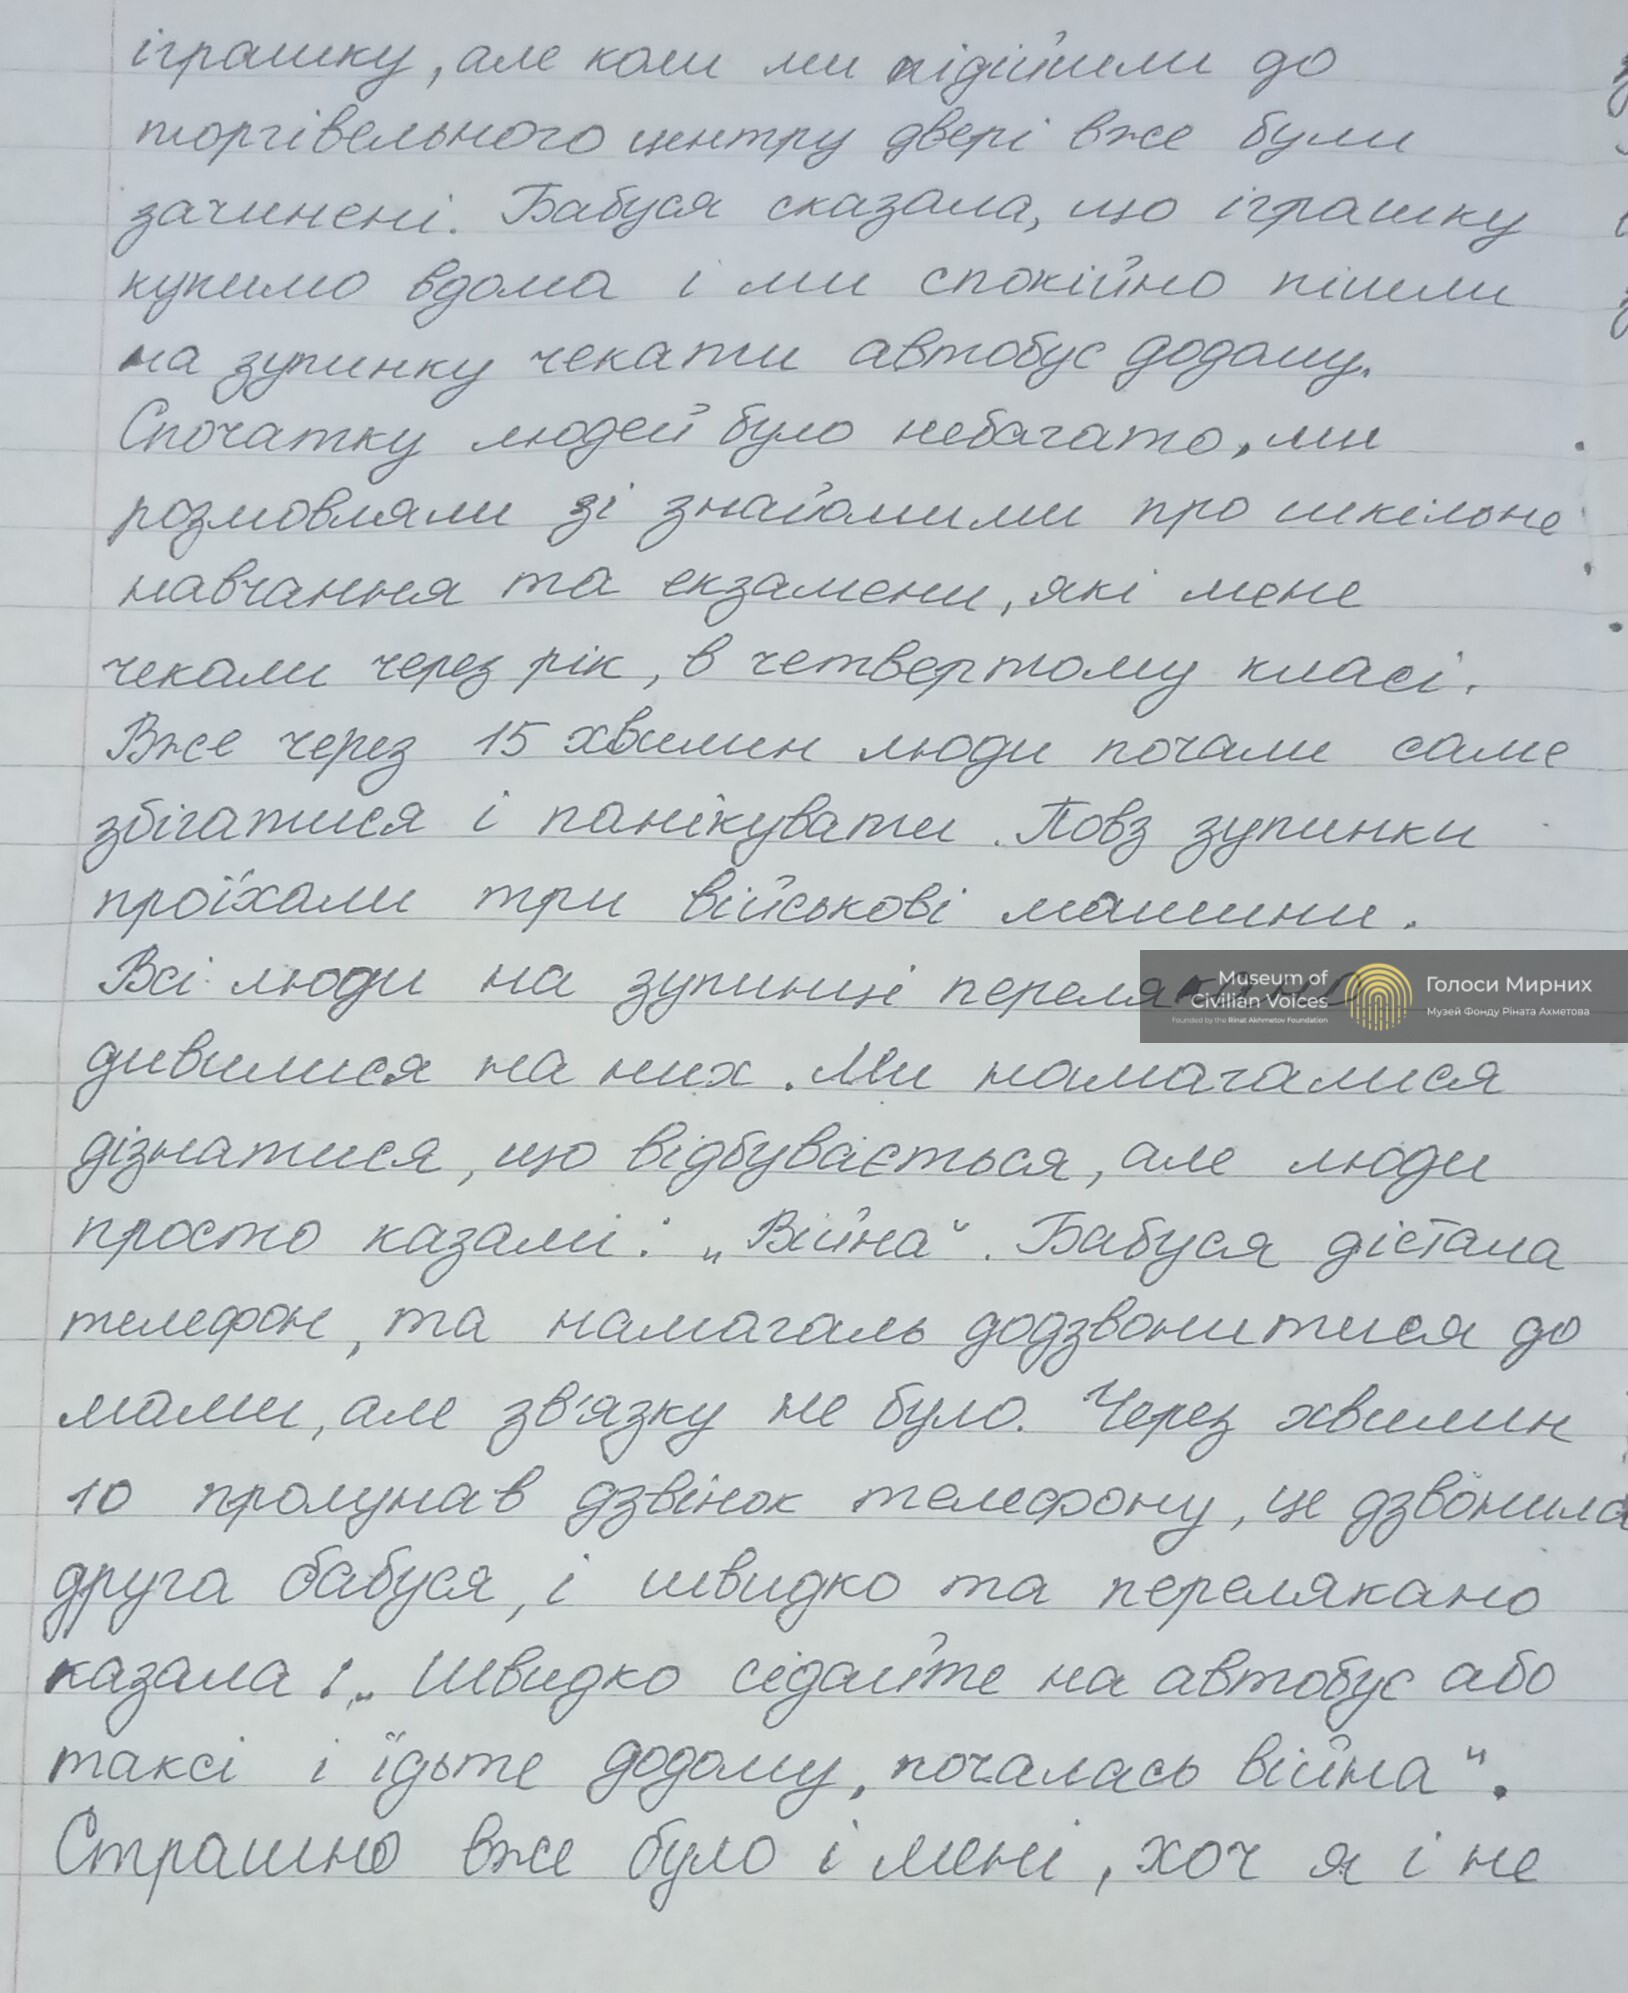 іграшку, але коли ми підійшли до
торгівельного центру двері вже були
зачинені. Бабуся сказала, що іграшку
купимо вдома і ми спокійно пішли
на зупинку чекати автобус додому.
Спочатку людей було небагато, ми
розмовляли зі знайомими про шкільне
навчання та екзамени, які мене
чекали через рік, в четвертому класі.
Вже через 15 хвилин люди почали саме
збігатися і панікувати. Повз зупинки
проїхали три військові машини.
Всі люди на зупинці перелякано
Museum of
Civilian Voices
Founded by the Rinat Akhmetov Foundation
Голоси Мирних
Музей Фонду Ріната Ахметова
дивилися на них. Ми намагалися
дізнатися, що відбувається, але люди
просто казалі: „Війна“. Бабуся дістала
телефон, та намагаль додзвонитися до
мами, але зв'язку не було. Через хвилин
10 пролунав дзвінок телефону, це дзвонила
друга бабуся, і швидко та перелякано
казала: „Швидко сідайте на автобус або
таксі і їдьте додому, почалась війна“.
Страшно вже було і мені, хоч я і не